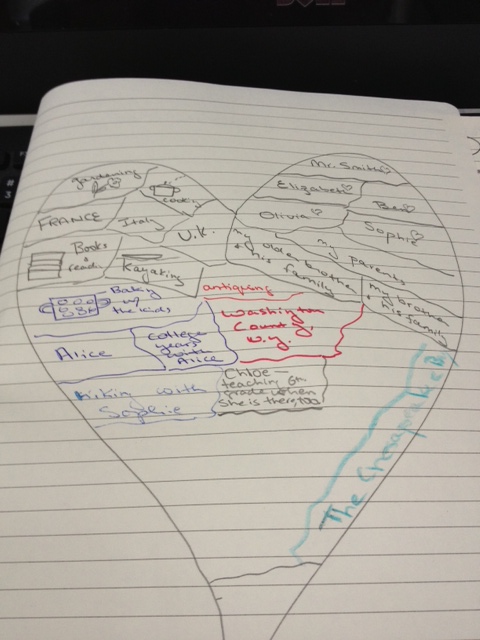 DELL
Mr. Smith
gardening
cooking
Elizabeth
Ben
FRANCE
Italy
Olivia
Sophie
U.K.
my parents
my older brother
& his family
Books
& read
Kayaking
my brother
& his family
antiquing
Baking
w/
the kids
Washington
County,
N.Y.
Alice
College
years
with
Alice
hiking with
Sophie
Chloe —
teaching 6th
grade when
she is there, too
The Chesapeake B